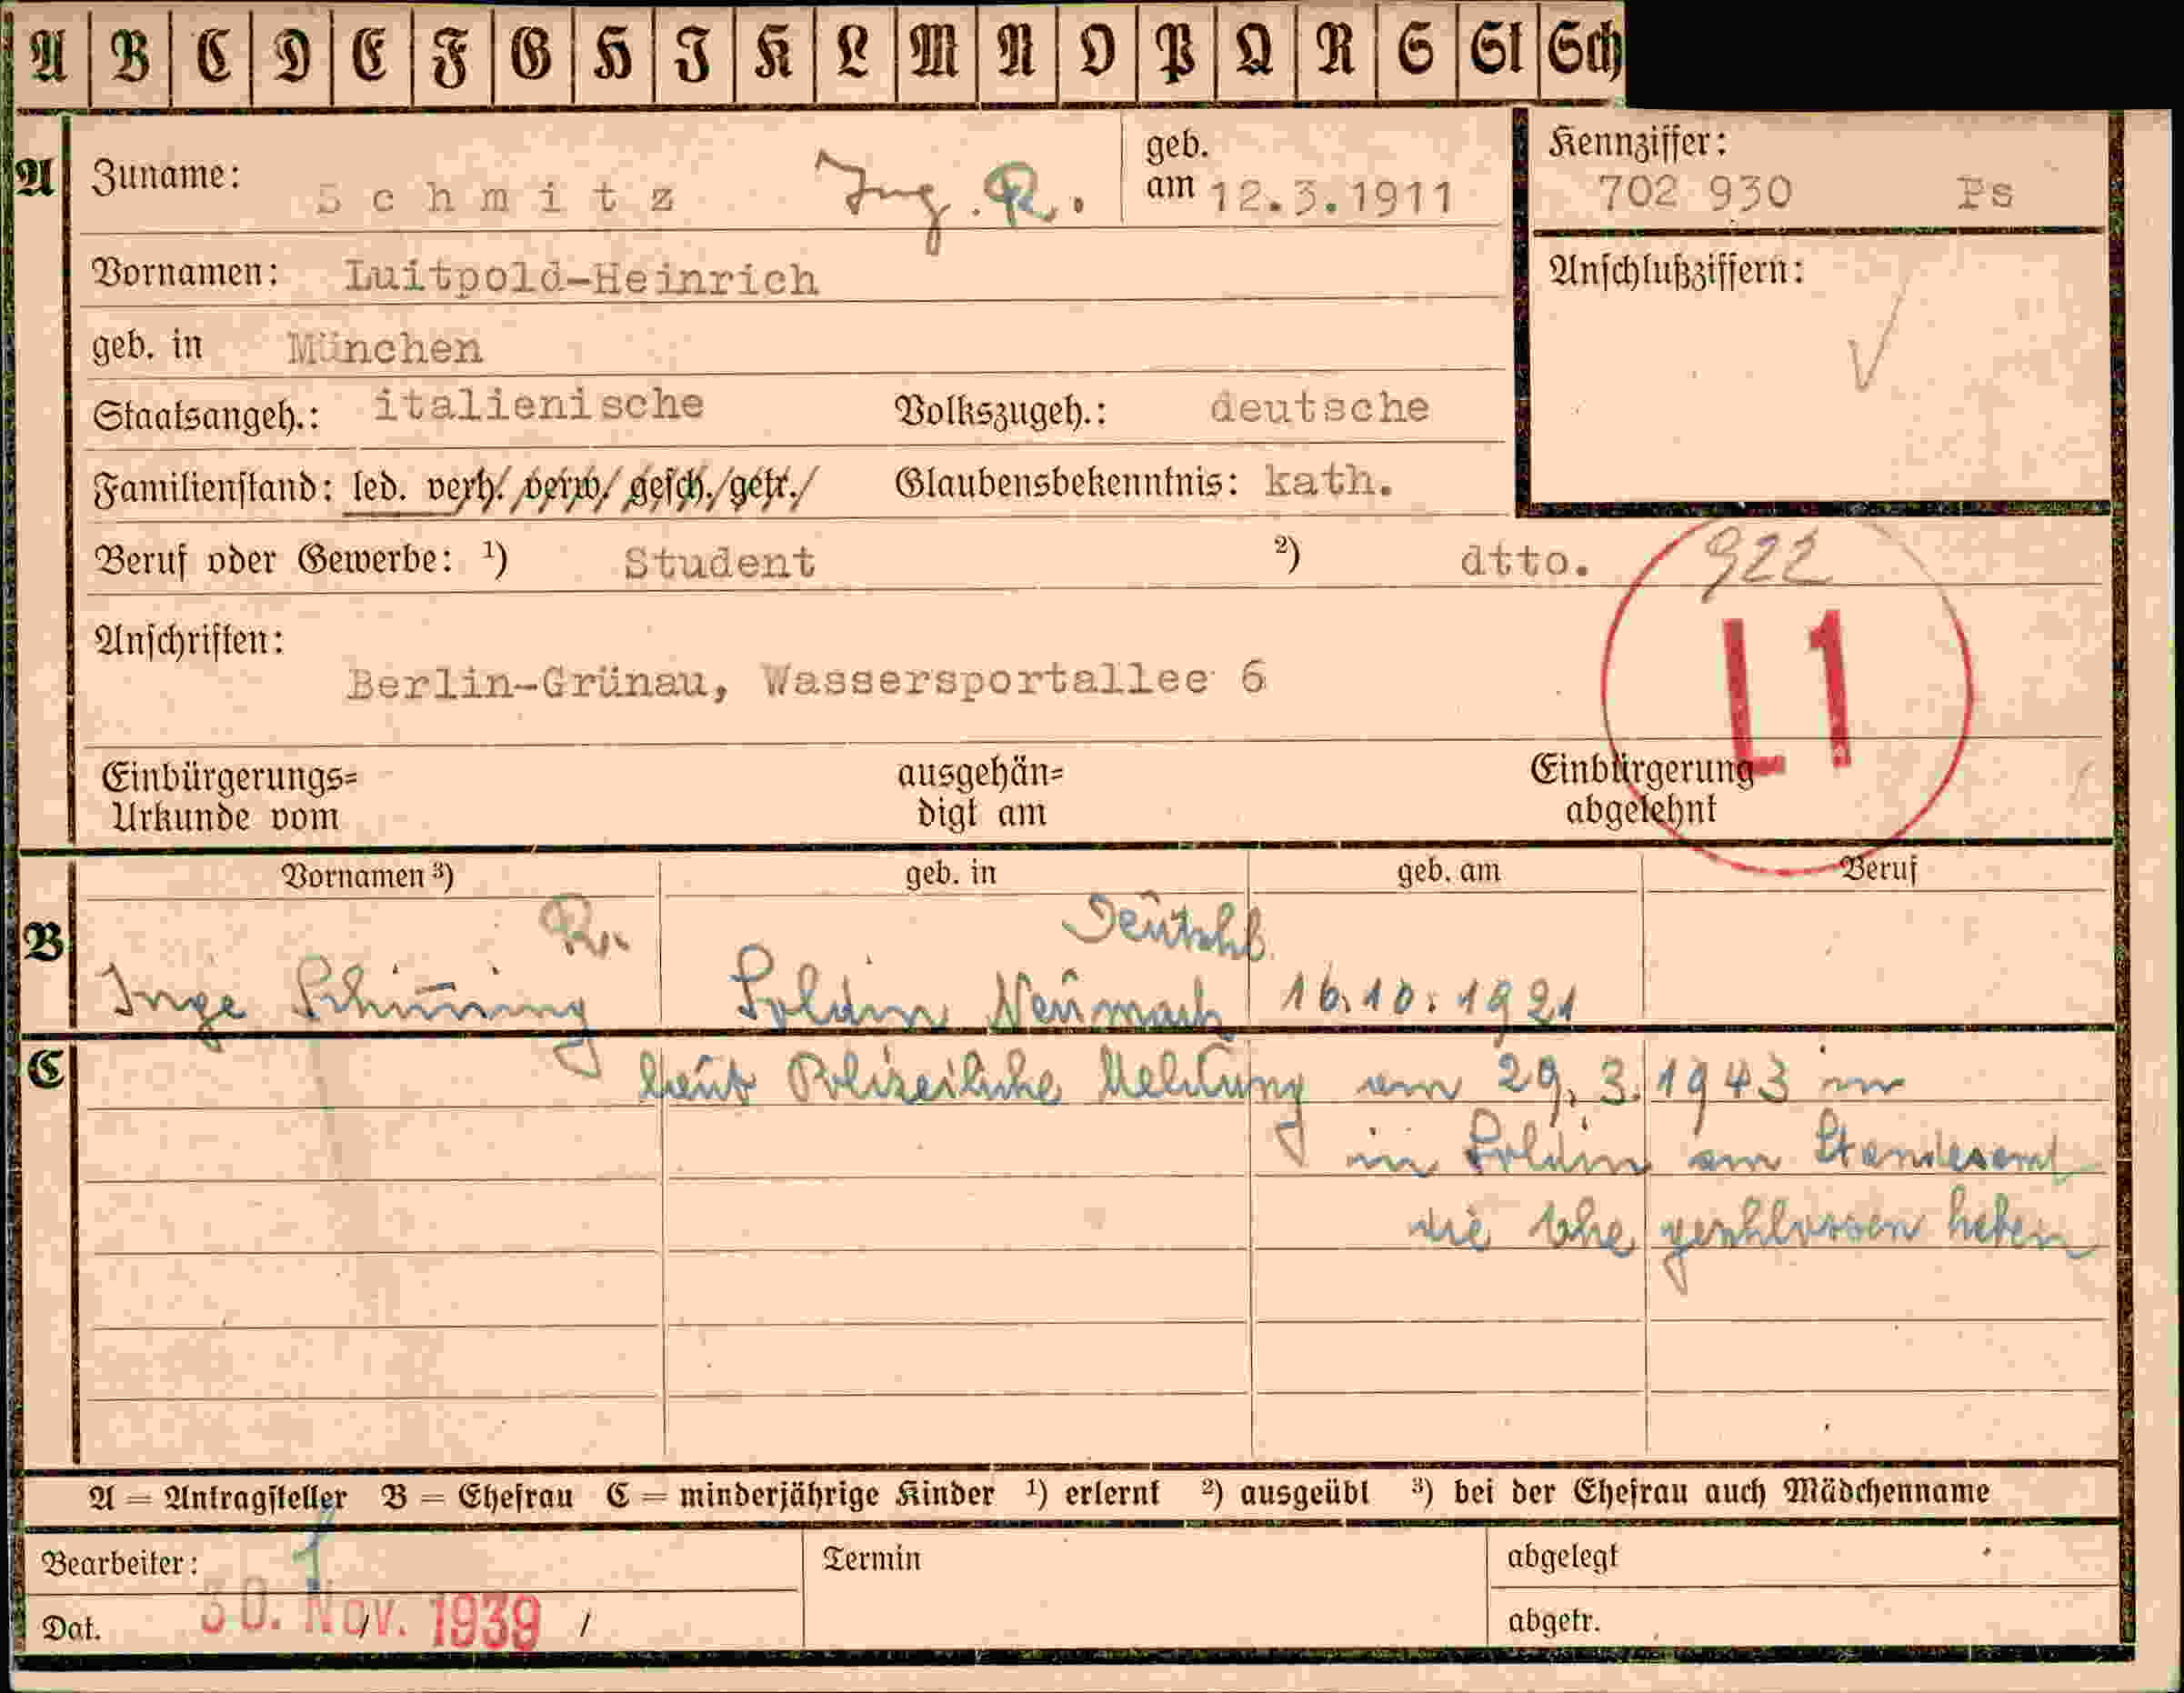 A B C D E F G H I K L M N O P Q R S St Sch
A
Zuname: Schmitz Ing. R. geb. am 12.3.1911
Kennziffer: 702 930 Ps
Vornamen: Luitpold-Heinrich
Anschlußziffern:
geb. in München
Staatsangeh.: italienische Volkszugeh.: deutsche
Familienstand: led. verh./verw./gesch./getr./ Glaubensbekenntnis: kath.
Beruf oder Gewerbe: ¹) Student ²) dtto. 922
Anschriften:
Berlin-Grünau, Wassersportallee 6
L1
Einbürgerungs= ausgehän= Einbürgerung
Urkunde vom digt am abgelehnt
Vornamen ³) geb. in geb. am Beruf
B
R. Deutschl.
Inge Soldin Neumark 16.10.1921
C
laut Polizeiliche Meldung am 29.3.1943 in
in Soldin am Standesamt
die Ehe geschlossen haben
A = Antragsteller B = Ehefrau C = minderjährige Kinder ¹) erlernt ²) ausgeübt ³) bei der Ehefrau auch Mädchenname
Bearbeiter: Termin abgelegt
Dat. 30. Nov. 1939 / abgetr.